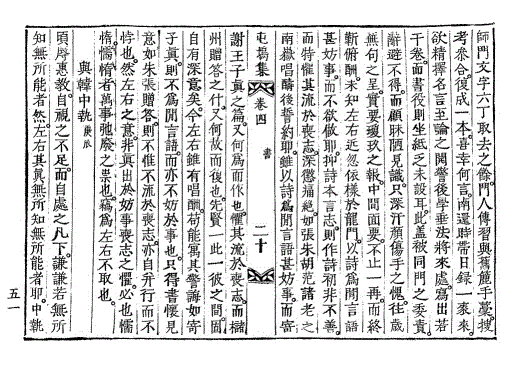 師門文字六丁取去之餘門人傳習與舊篋手藁搜
考叅合復成一本喜幸何言南還時帶日録一袠來
欲精擇名言至論之関警後學垂法將來處寫出若
干卷而書役則坐紙乏未設耳此盖被同門之委責
辭避不得而顧昧陋見識只深汗顔傷手之愧往歲
無句之呈實要瓊玖之報中間面要不止一再而終
靳俯酬未知左右近忽依樣於龍門以詩爲閒言語
甚妨事而不欲做耶抑詩本言志則作詩初非不善
而特懼其流於喪志深懲痛絶如張朱胡范諸老之
南嶽唱酬後誓約耶雖以詩爲閒言語甚妨事而寄
屯塢集
卷四
書
二十
謝王子眞之篇又何爲而作也懼其流於喪志而櫧
州贈答之什又何故而後也先賢一此一彼之間固
自有深意矣今左右雖有唱酬苟能寓其警誨如寄
子眞則不爲閒言語而亦不妨於事也只得書懷見
意如朱張贈答則不惟不流於喪志亦自升行而不
悖也然左右之意非眞出於妨事喪志之懼必也懦
惰慵懶者萬事弛廢之祟也竊爲左右不取也
與韓中執 庚辰
頭辱惠教自視之不足而自處之凡下謙謙若無所
知無所能者然左右其眞無所知無所能者耶中執
五一